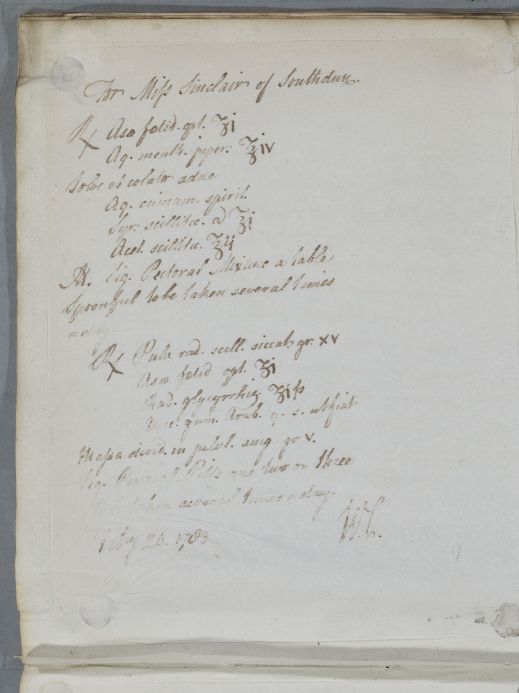 For Miss Sinclair of Southdun.
℞ Asæ fœtid. opt. ʒi
Aq. menth. piper. ℥iv
Solve et colatur adde
Aq. cinnam. spirit.
Syr. scillitic. a ℥i
Acet. scillitic. ʒij
M. Sig. Pectoral Mixture a table
spoonful to be taken several times
a day
℞ Pulv. rad. scill. siccat. gr. xv
Asæ fœtid. opt. ʒi
Rad. glycyrrhiz. ʒiſs
gum. Arab. q. s. ut fiat
Massa divid. in pilul. sing. gr. v.
Sig. Pills one two or three
to be taken several times a day.
Feby 26. 1783